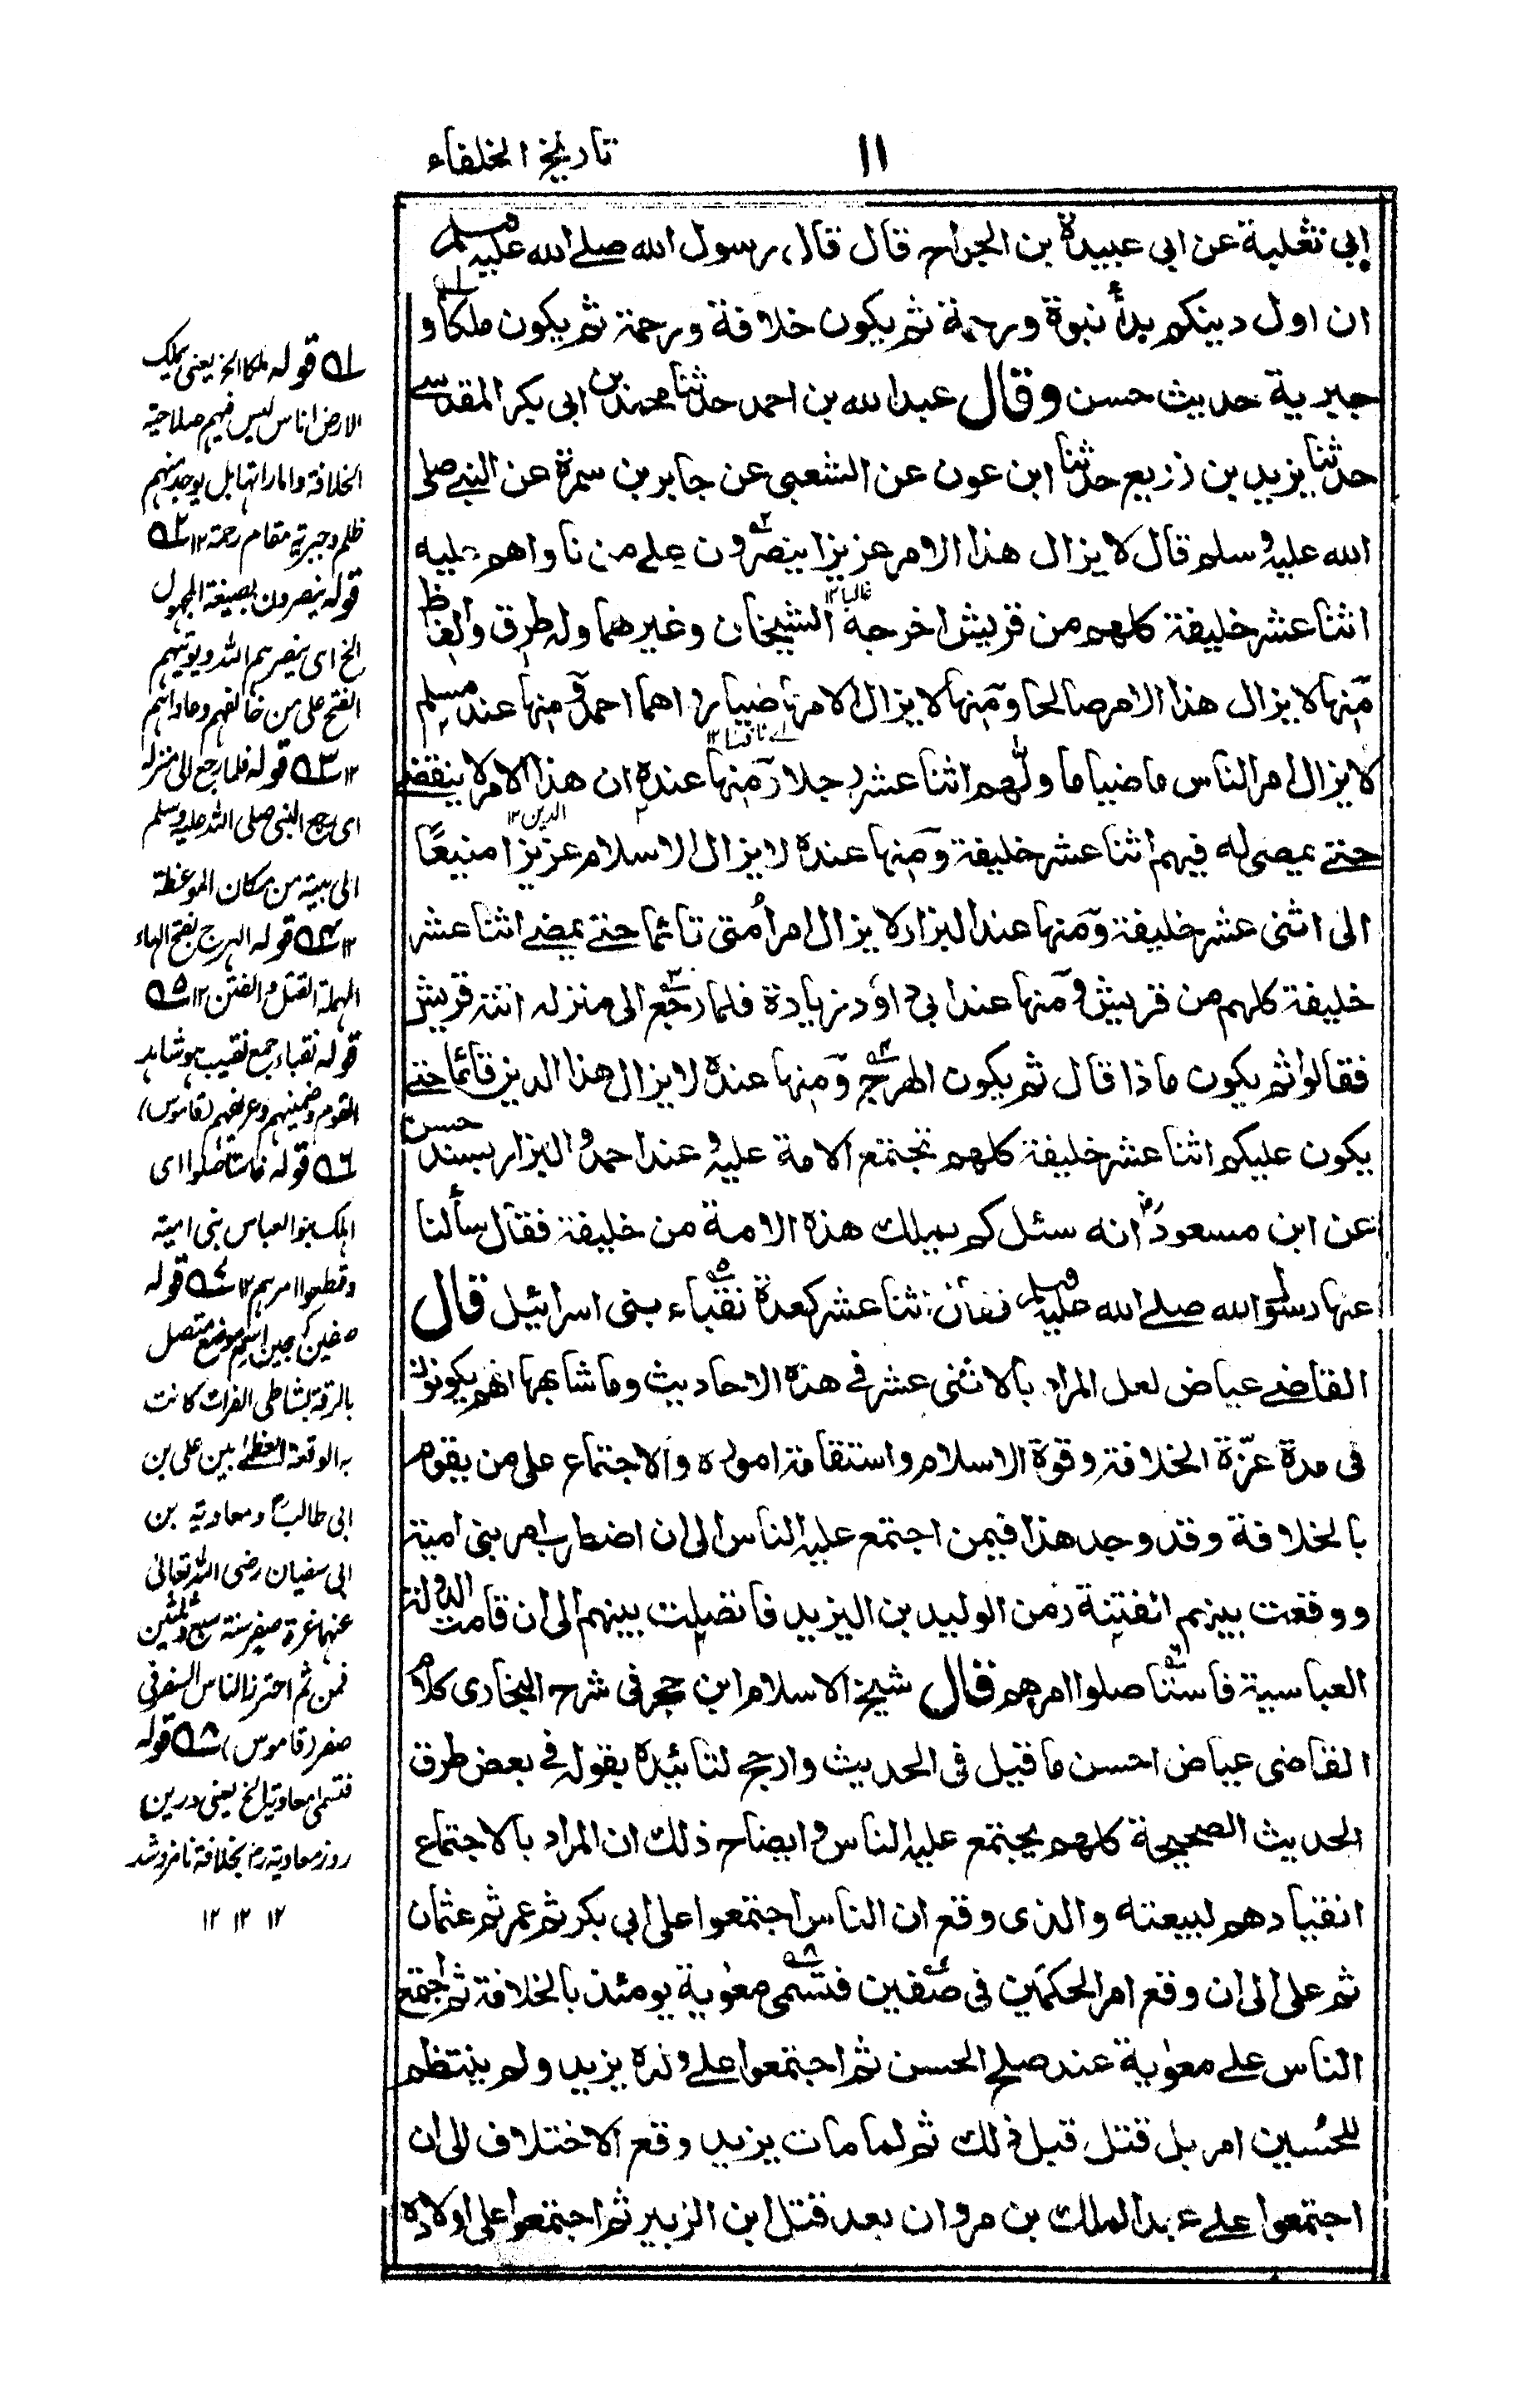 تاريخ الخلفاء
۱۱
ابي ثعلبة عن ابي عبيدة بن الجراح قال قال رسول الله صلے الله عليه وسلم
ان اول دينكم بدأ نبوة ورحمة ثم يكون خلافة ورحمة ثم يكون ملكا و
جبرية حديث حسن وقال عبدالله بن احمد حدثنا محمد بن ابي بكر المقدسے
حدثنا يزيد بن زريع حدثنا ابن عون عن الشعبى عن جابر بن سمرة عن النبے صلى
الله عليه وسلم قال لا يزال هذا الامر عزيزا ينصرون علے من ناواهم عليه
اثنا عشر خليفة كلهم من قريش اخرجه الشيخان وغيرهما وله طرق والفاظ
غالبا ۱۲
منها لا يزال هذا الامر صالحا ومنها لا يزال الامر ماضيا رواهما احمد ومنها عند مسلم
اے نافذا ۱۲
لا يزال امر الناس ماضيا ما وليهم اثنا عشر رجلا ومنها عنده ان هذا الامر لا ينقضے
الدين ۱۲
حتے يمضى له فيهم اثنا عشر خليفة ومنها عنده لا يزال الاسلام عزيزا منيعًا
الى اثنى عشر خليفة ومنها عند البزار لا يزال امر أمتى قائما حتے يمضے اثنا عشر
خليفة كلهم من قريش ومنها عند ابي داود زيادة فلما رجع الى منزله اتته قريش
فقالوا ثم يكون ماذا قال ثم يكون الهرج ومنها عنده لا يزال هذا الدين قائما حتے
يكون عليكم اثنا عشر خليفة كلهم تجتمع الامة عليه وعند احمد والبزار بسند حسن
عن ابن مسعود رض انه سئل كم يملك هذه الامة من خليفة فقال سألنا
عنها رسول الله صلے الله عليه وسلم فقال اثنا عشر كعدة نقباء بنى اسرائيل قال
القاضے عياض لعل المراد بالاثنى عشر فے هذه الاحاديث وما شابهها انهم يكونون
فى مدة عزّة الخلافة وقوة الاسلام واستقامة اموره والاجتماع على من يقوم
بالخلافة وقد وجد هذا فيمن اجتمع عليه الناس الى ان اضطرب امر بنى امية
ووقعت بينهم الفتنة زمن الوليد بن اليزيد فاتصلت بينهم الى ان قامت الدولة
العباسية فاستاصلوا امرهم قال شيخ الاسلام ابن حجر فى شرح البخارى كلام
القاضى عياض احسن ما قيل فى الحديث وارجح لتائيده بقوله فے بعض طرق
الحديث الصحيحة كلهم يجتمع عليه الناس وايضاح ذلك ان المراد بالاجتماع
انقيادهم لبيعته والذى وقع ان الناس اجتمعوا على ابي بكر ثم عمر ثم عثمان
ثم على الى ان وقع امر الحكمين فى صفين فتسمى معوية يومئذ بالخلافة ثم اجتمع
الناس علے معوية عند صلح الحسن ثم اجتمعوا علے ولده يزيد ولم ينتظم
للحسين امر بل قتل قبل ذلك ثم لما مات يزيد وقع الاختلاف الى ان
اجتمعوا علے عبد الملك بن مروان بعد قتل ابن الزبير ثم اجتمعوا على اولاده
۱ قوله ملكا الخ يعنى يملك
الارض اناس ليس فيهم صلاحية
الخلافة واماراتها بل يوجد منهم
ظلم وجبرية مقام رحمة ۱۲ ۲
قوله ينصرون بصيغة المجهول
الخ اى ينصرهم الله ويوتيهم
الفتح على من خالفهم وعاداهم
۱۲ ۳ قوله فلما رجع الى منزله
اى رجع النبى صلى الله عليه وسلم
الى بيته من مكان الموعظة
۱۲ ۴ قوله الهرج بفتح الهاء
المهملة القتل والفتن ۱۲ ۵
قوله نقباء جمع نقيب هو شاهد
القوم وضمينهم وعريفهم (قاموس)
۶ قوله فاستاصلوا اى
اهلك بنو العباس بنى امية
وقطعوا امرهم ۱۲ ۷ قوله
صفين كسجين اسم موضع متصل
بالرقة بشاطى الفرات كانت
به الوقعة العظمے بين على بن
ابى طالب ومعاوية بن
ابى سفيان رضى الله تعالى
عنهما غرة صفر سنة سبع وثلثين
فمن ثم احترز الناس السفر فى
صفر (قاموس) ۸ قوله
فتسمى معاوية الخ يعنى درين
روز معاويه رض بخلافة نامزد شد
۱۲ ۱۲ ۱۲